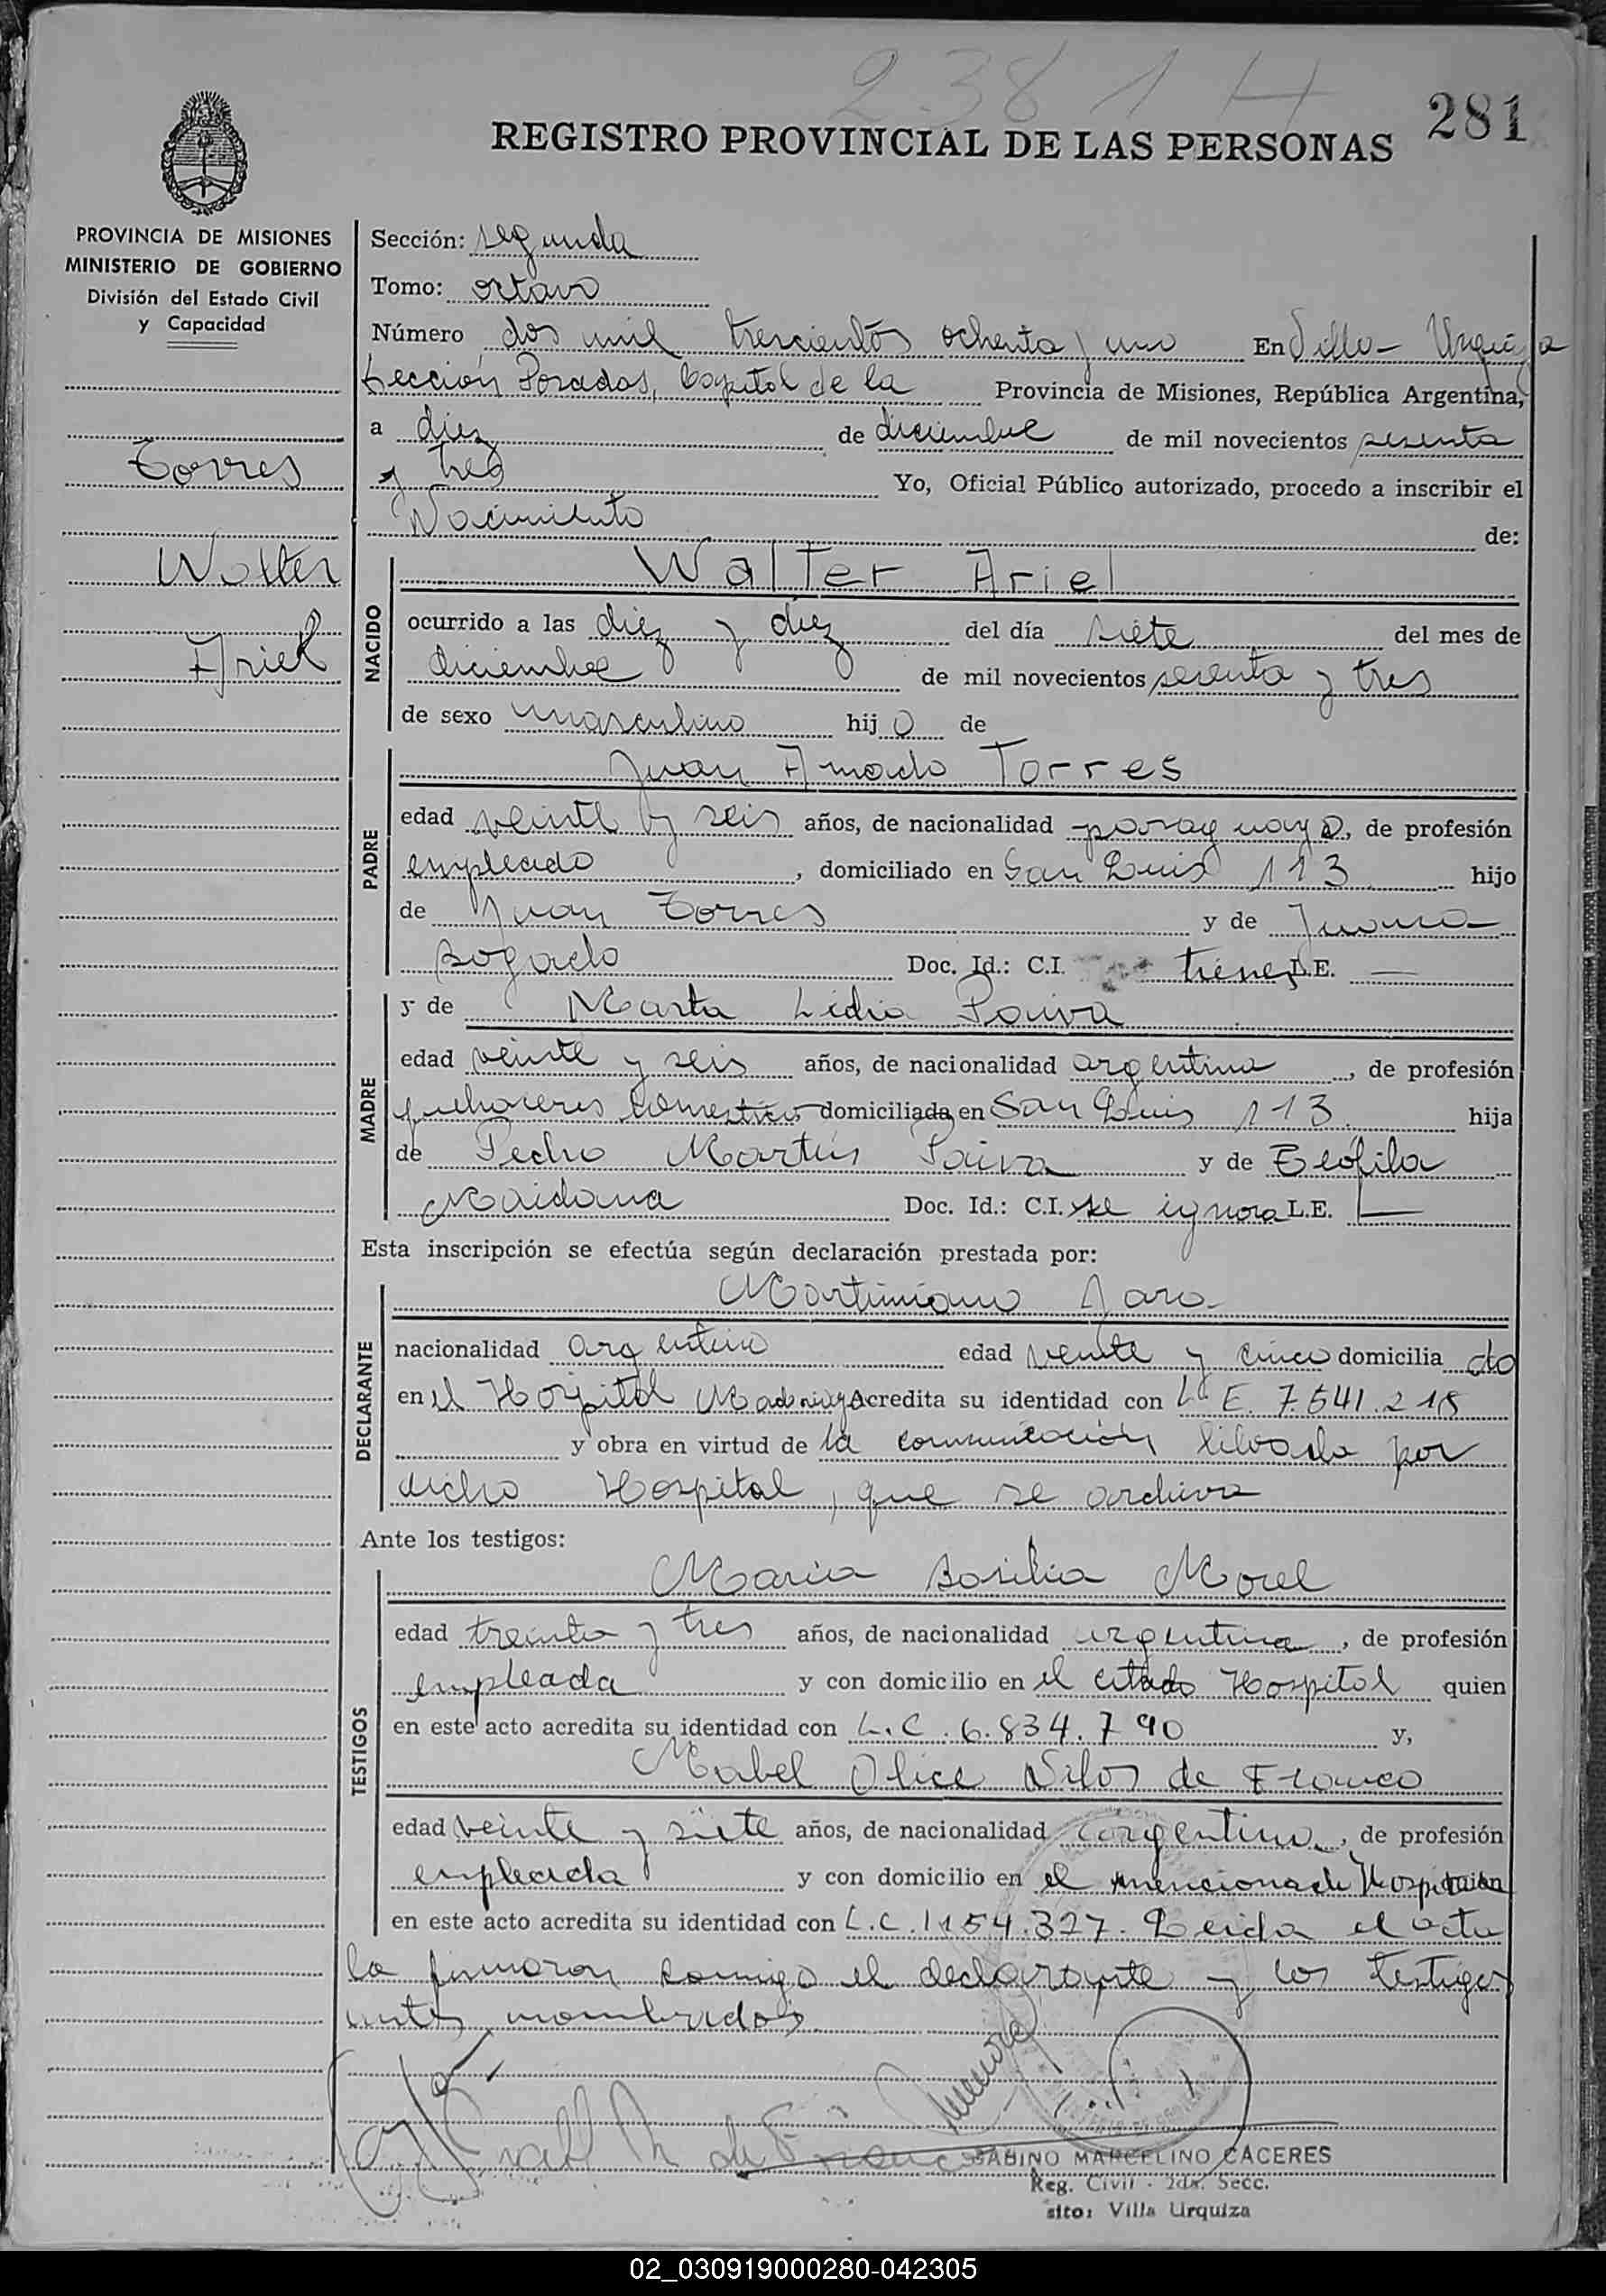 2381 H
281
REGISTRO PROVINCIAL DE LAS PERSONAS
PROVINCIA DE MISIONES
MINISTERIO DE GOBIERNO
División del Estado Civil
y Capacidad
Torres
Walter
Ariel
Sección: segunda
Tomo: octavo
Número dos mil trescientos ochenta y uno En Villa Urquiza
Sección Posadas, Capital de la Provincia de Misiones, República Argentina,
a diez de diciembre de mil novecientos sesenta
y tres Yo, Oficial Público autorizado, procedo a inscribir el
Nacimiento de:
NACIDO
Walter Ariel
ocurrido a las diez y diez del día siete del mes de
diciembre de mil novecientos sesenta y tres
de sexo masculino hijo de
PADRE
Juan Amado Torres
edad veinte y seis años, de nacionalidad paraguayo, de profesión
empleado, domiciliado en San Luis 113 hijo
de Juan Torres y de Juana
Bogado Doc. Id.: C.I. tiene L.E. —
MADRE
y de Marta Lidia Paiva
edad veinte y seis años, de nacionalidad argentina, de profesión
quehaceres domesticos domiciliada en San Luis 113 hija
de Pedro Martín Paiva y de Teofila
Maidana Doc. Id.: C.I. se ignora L.E. —
Esta inscripción se efectúa según declaración prestada por:
DECLARANTE
Martiniano Jara
nacionalidad argentino edad veinte y cinco domiciliado
en el Hospital Madariaga Acredita su identidad con L. E. 7.541.218
y obra en virtud de la comunicación librada por
dicho Hospital, que se archiva
Ante los testigos:
TESTIGOS
Maria Basilia Morel
edad treinta y tres años, de nacionalidad argentina, de profesión
empleada y con domicilio en el citado Hospital quien
en este acto acredita su identidad con L.C. 6.834.790 y,
Mabel Alice de Franco
edad veinte y siete años, de nacionalidad argentina, de profesión
empleada y con domicilio en el mencionado Hospital quien
en este acto acredita su identidad con L.C. 1154.327. Leida el acta
la firmaron conmigo el declarante y los testigos
antes nombrados
SABINO MARCELINO CACERES
Reg. Civil - 2da. Secc.
sito: Villa Urquiza
02_030919000280-042305